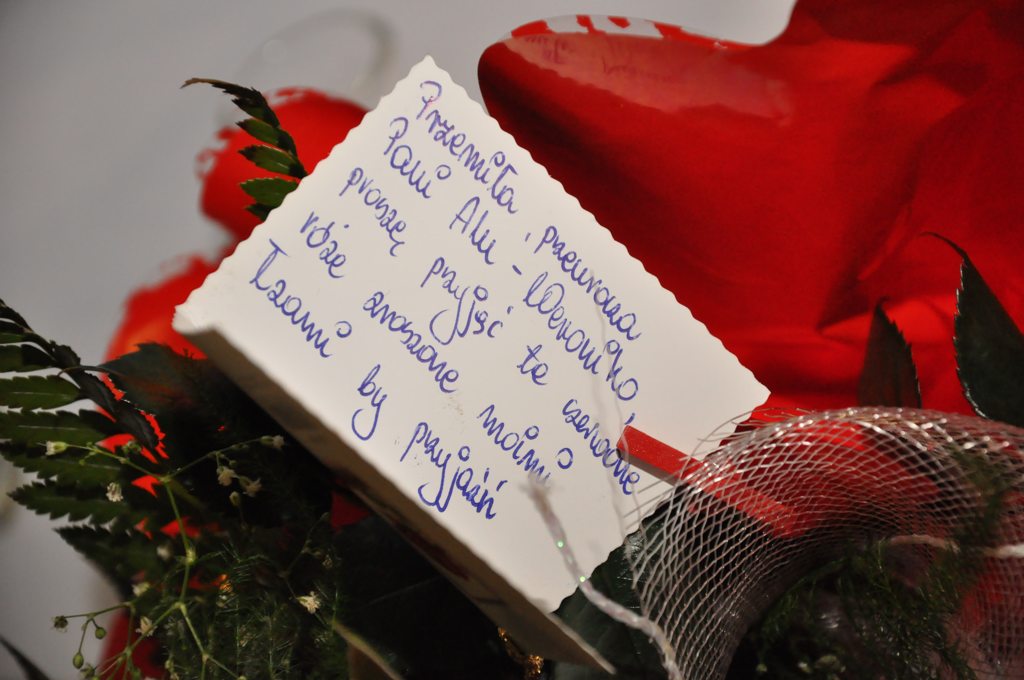 Przemiła, przeurocza
Pani Alu - Weroniko,
proszę przyjąć te czerwone
róże zroszone moimi
łzami by przyjaźń